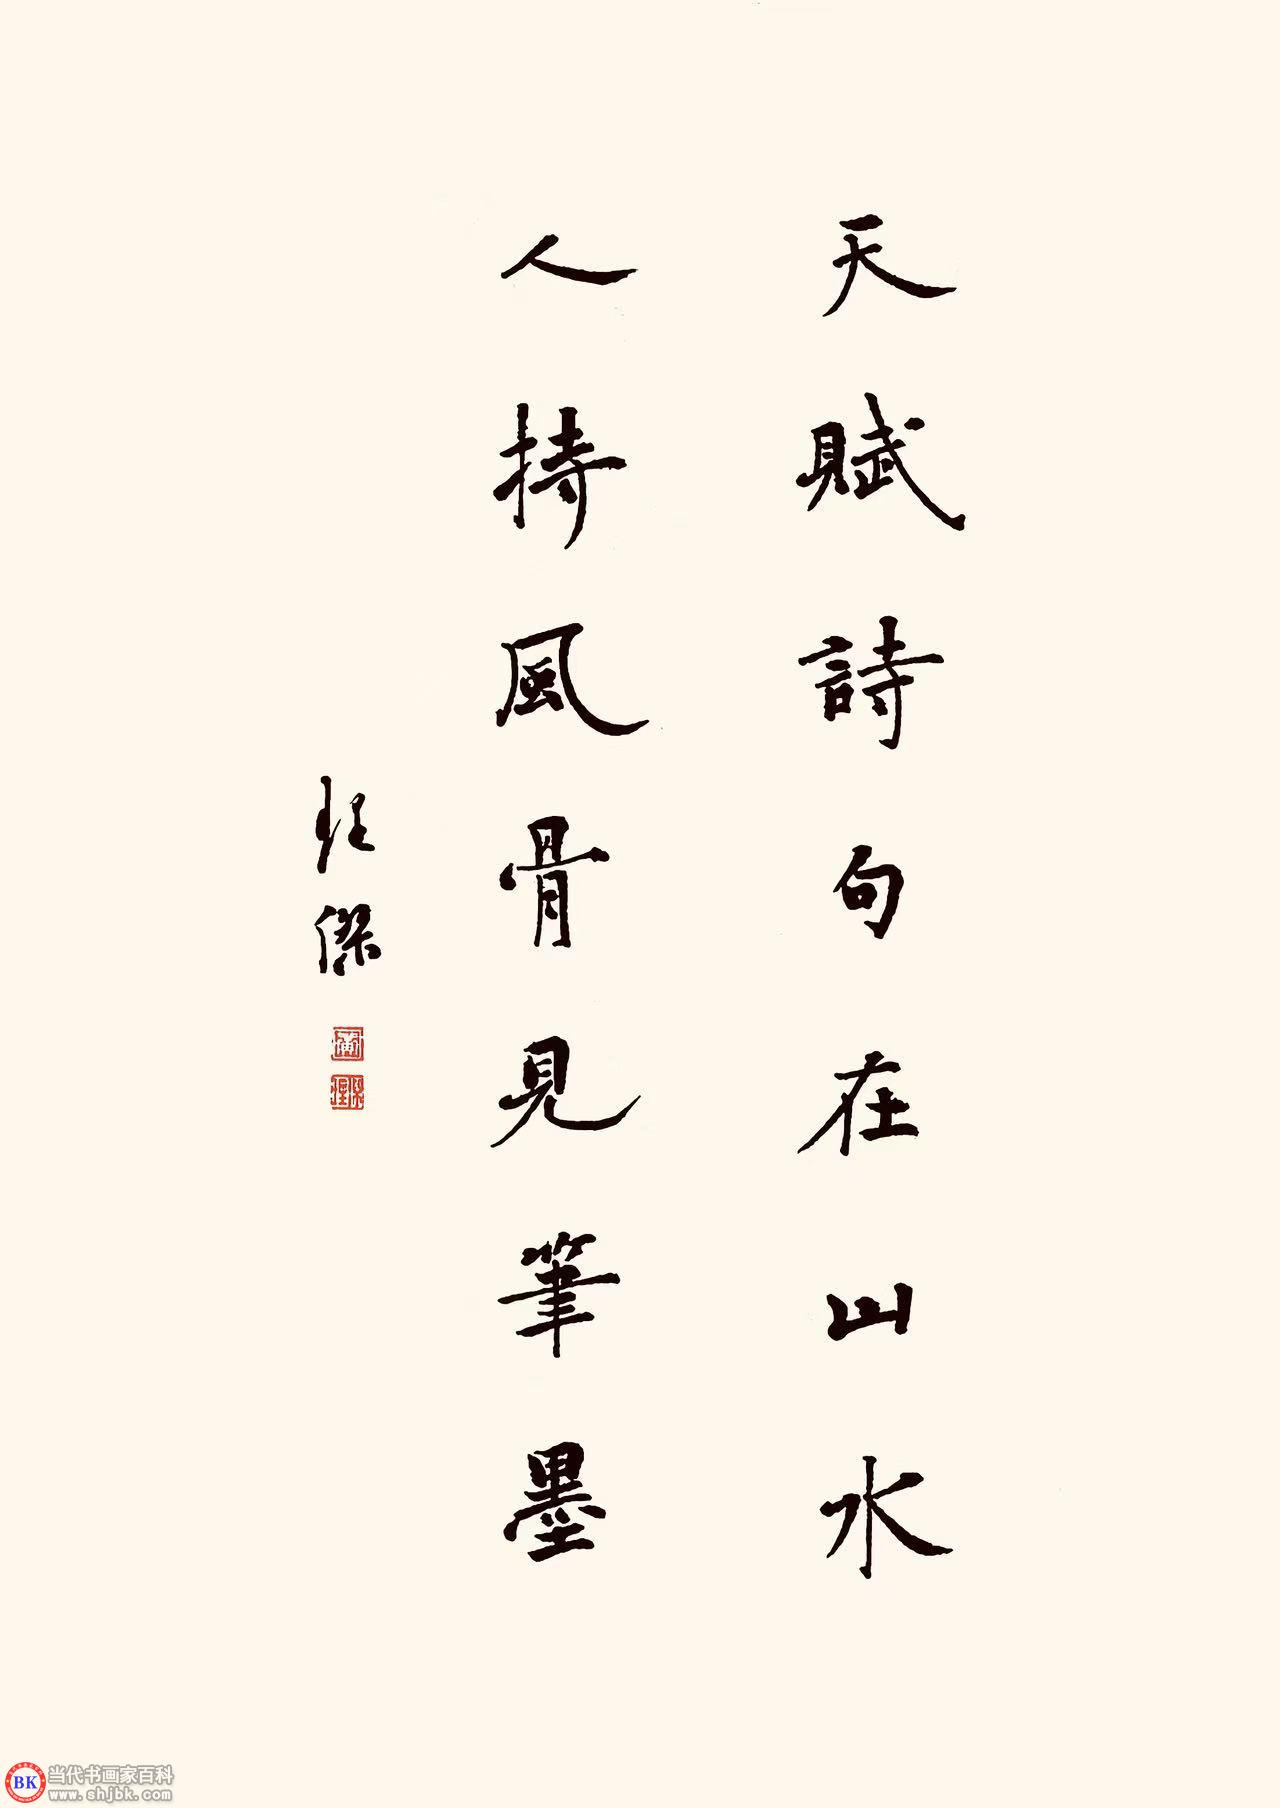 天賦詩句在山水
人持風骨見筆墨
傑
BK
当代书画家百科
www.shjbk.com